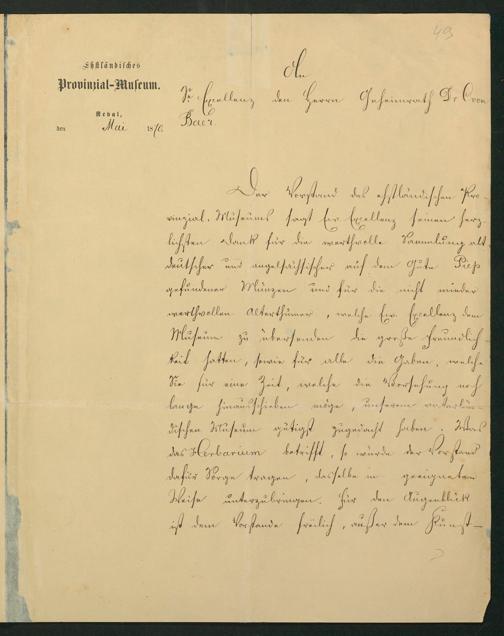 49
Ehstländisches
Provinzial-Museum.
Reval,
den Mai 187
An
Se Excellenz den Herrn Geheimrath Dr C von
Baer.
Der Vorstand des ehstländischen Pro-
vinzial-Museums sagt Ew Excellenz seinen herz-
lichsten Dank für die werthvolle Sammlung alt
deutscher und angelsächsischer auf dem Gute Piep
gefundener Münzen und für die nicht minder
werthvollen Alterthümer, welche Ew. Excellenz dem
Museum zu übersenden die große Freundlich-
keit hatten, sowie für alle die Gaben, welche
Sie für eine Zeit, welche die Vorsehung noch
lange hinausschieben möge, unserem vaterlän-
dischen Museum gütigst zugedacht haben. Was
das Herbarium betrifft, so würde der Vorstand
dafür Sorge tragen, dasselbe in geeigneter
Weise unterzubringen. Für den Augenblick
ist dem Vorstande freilich, außer dem Kunst-